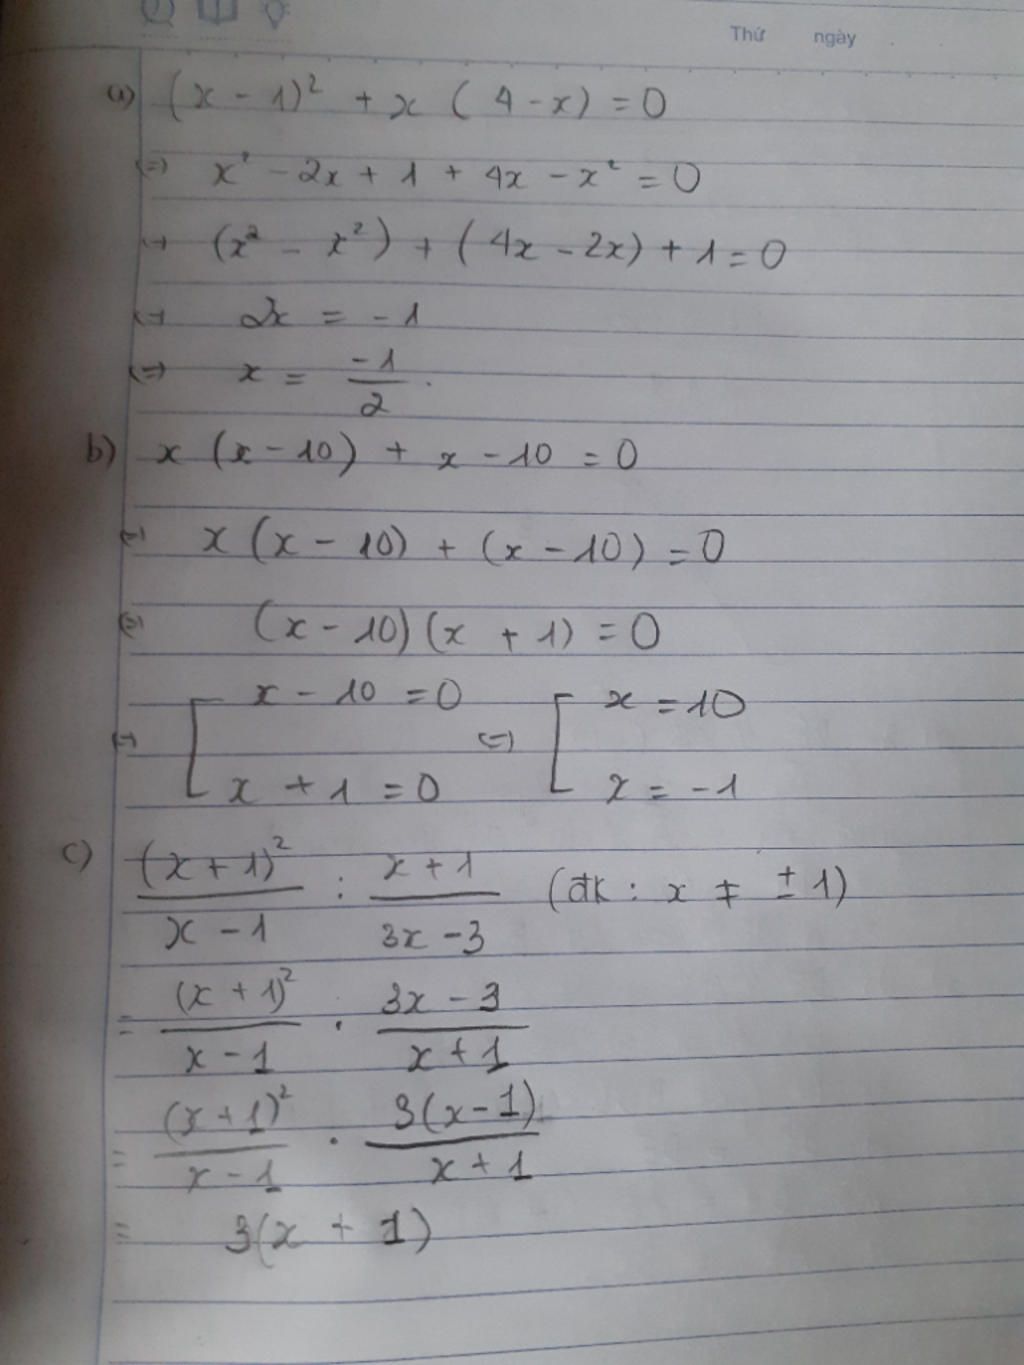 Thứ ngày
a) (x - 1)² + x (4 - x) = 0
(=) x² - 2x + 1 + 4x - x² = 0
(=) (x² - x²) + (4x - 2x) + 1 = 0
(=) 2x = -1
(=) x = -1/2.
b) x (x - 10) + x - 10 = 0
(=) x (x - 10) + (x - 10) = 0
(=) (x - 10) (x + 1) = 0
(=) [ x - 10 = 0 (=) [ x = 10
x + 1 = 0 x = -1
c) (x + 1)²/(x - 1) : (x + 1)/(3x - 3) (đk : x ≠ ± 1)
= (x + 1)²/(x - 1) . (3x - 3)/(x + 1)
= (x + 1)²/(x - 1) . 3(x - 1)/(x + 1)
= 3(x + 1)